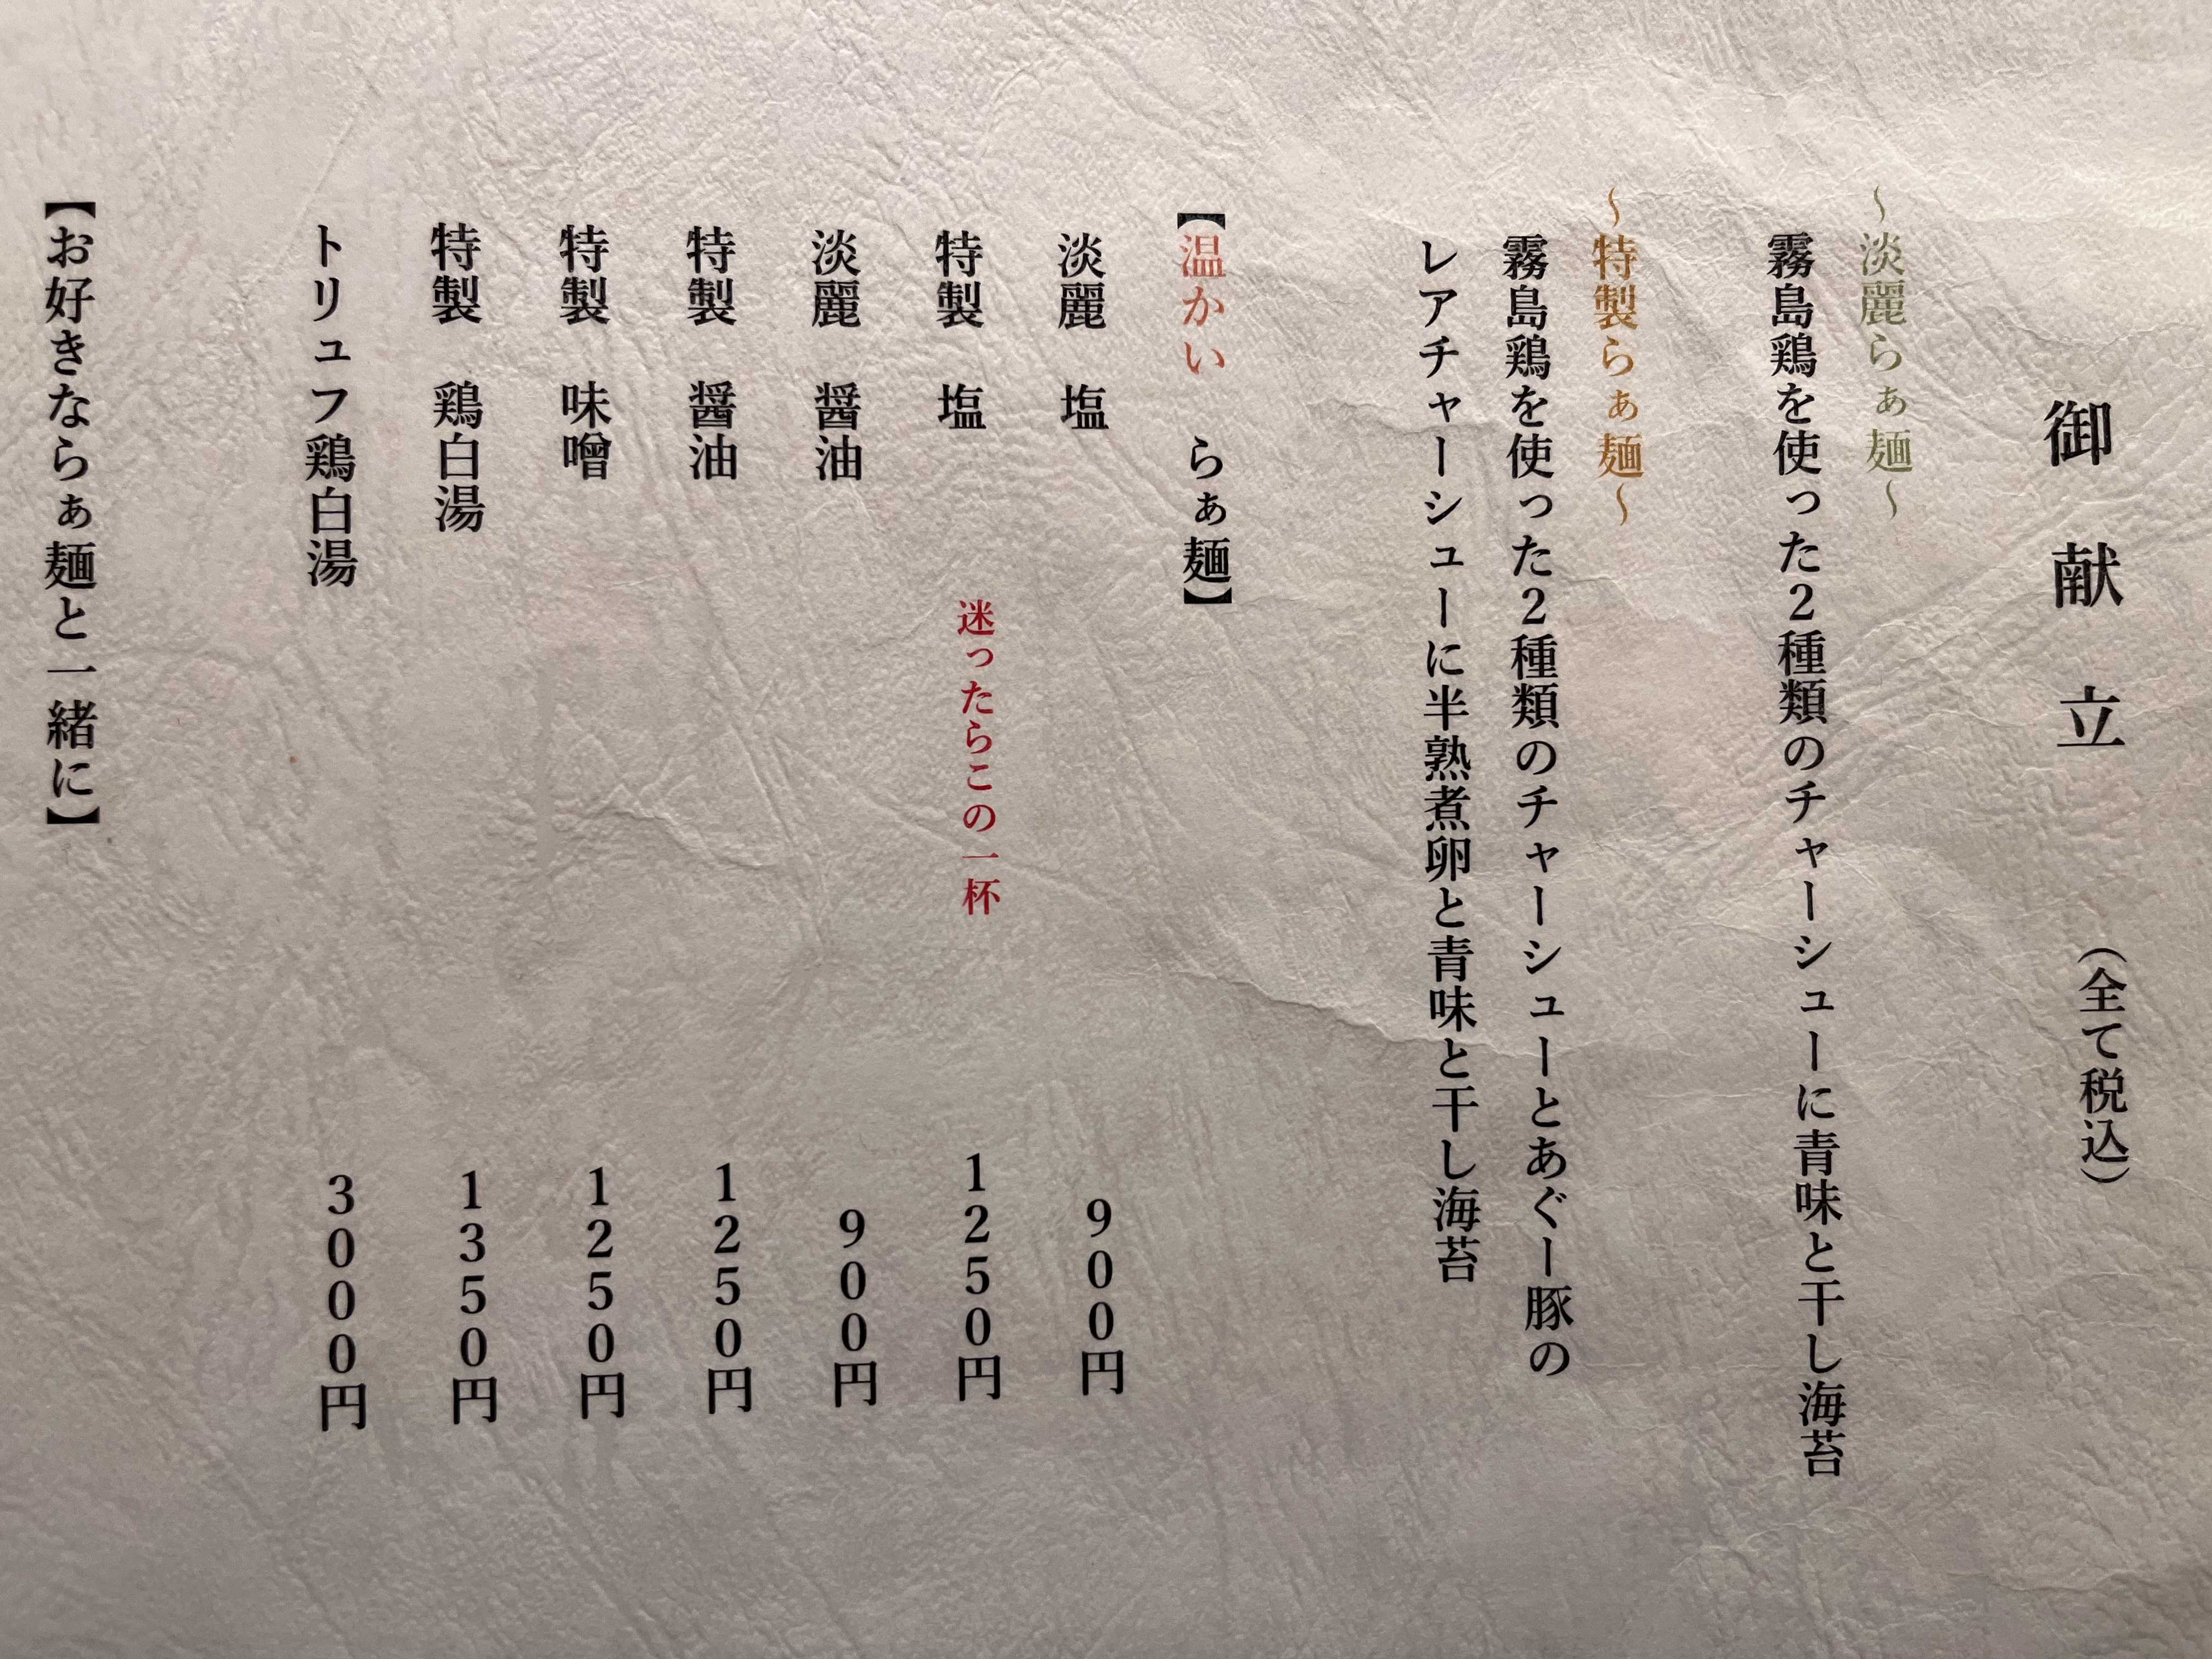 御献立 （全て税込）
～淡麗らぁ麺～
霧島鶏を使った2種類のチャーシューに青味と干し海苔
～特製らぁ麺～
霧島鶏を使った2種類のチャーシューとあぐー豚の
レアチャーシューに半熟煮卵と青味と干し海苔
【温かい らぁ麺】
淡麗 塩 900円
特製 塩 迷ったらこの一杯 1250円
淡麗 醤油 900円
特製 醤油 1250円
特製 味噌 1250円
特製 鶏白湯 1350円
トリュフ鶏白湯 3000円
【お好きならぁ麺と一緒に】